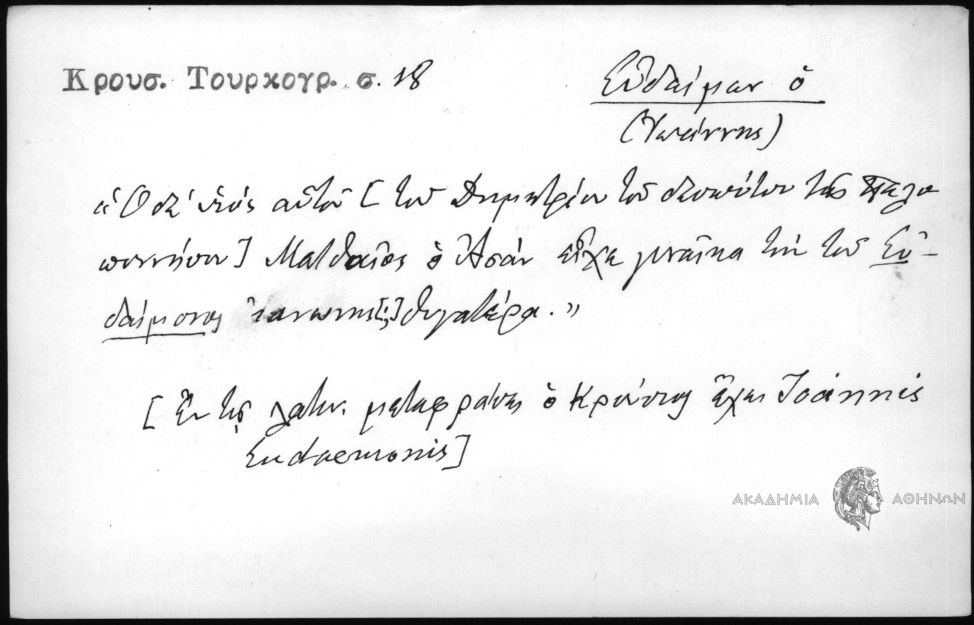 Κρουσ. Τουρκογρ. σ. 18
Εὐδαίμων ὁ
(Ἰωάννης)
«Ὁ δέ υἱός αὐτοῦ [τοῦ Δημητρίου τοῦ δεσπότου τῆς Πελο
ποννήσου] Ματθαῖος ὁ Ἀσάν εἶχε γυναῖκα τήν τοῦ Εὐ-
δαίμονος [;] θυγατέρα.»
[Ἐν τῇ λατιν. μεταφράσει ὁ Κρούσιος ἔχει Ioánnis
Eudaemonis]
ΑΚΑΔΗΜΙΑ ΑΘΗΝΩΝ